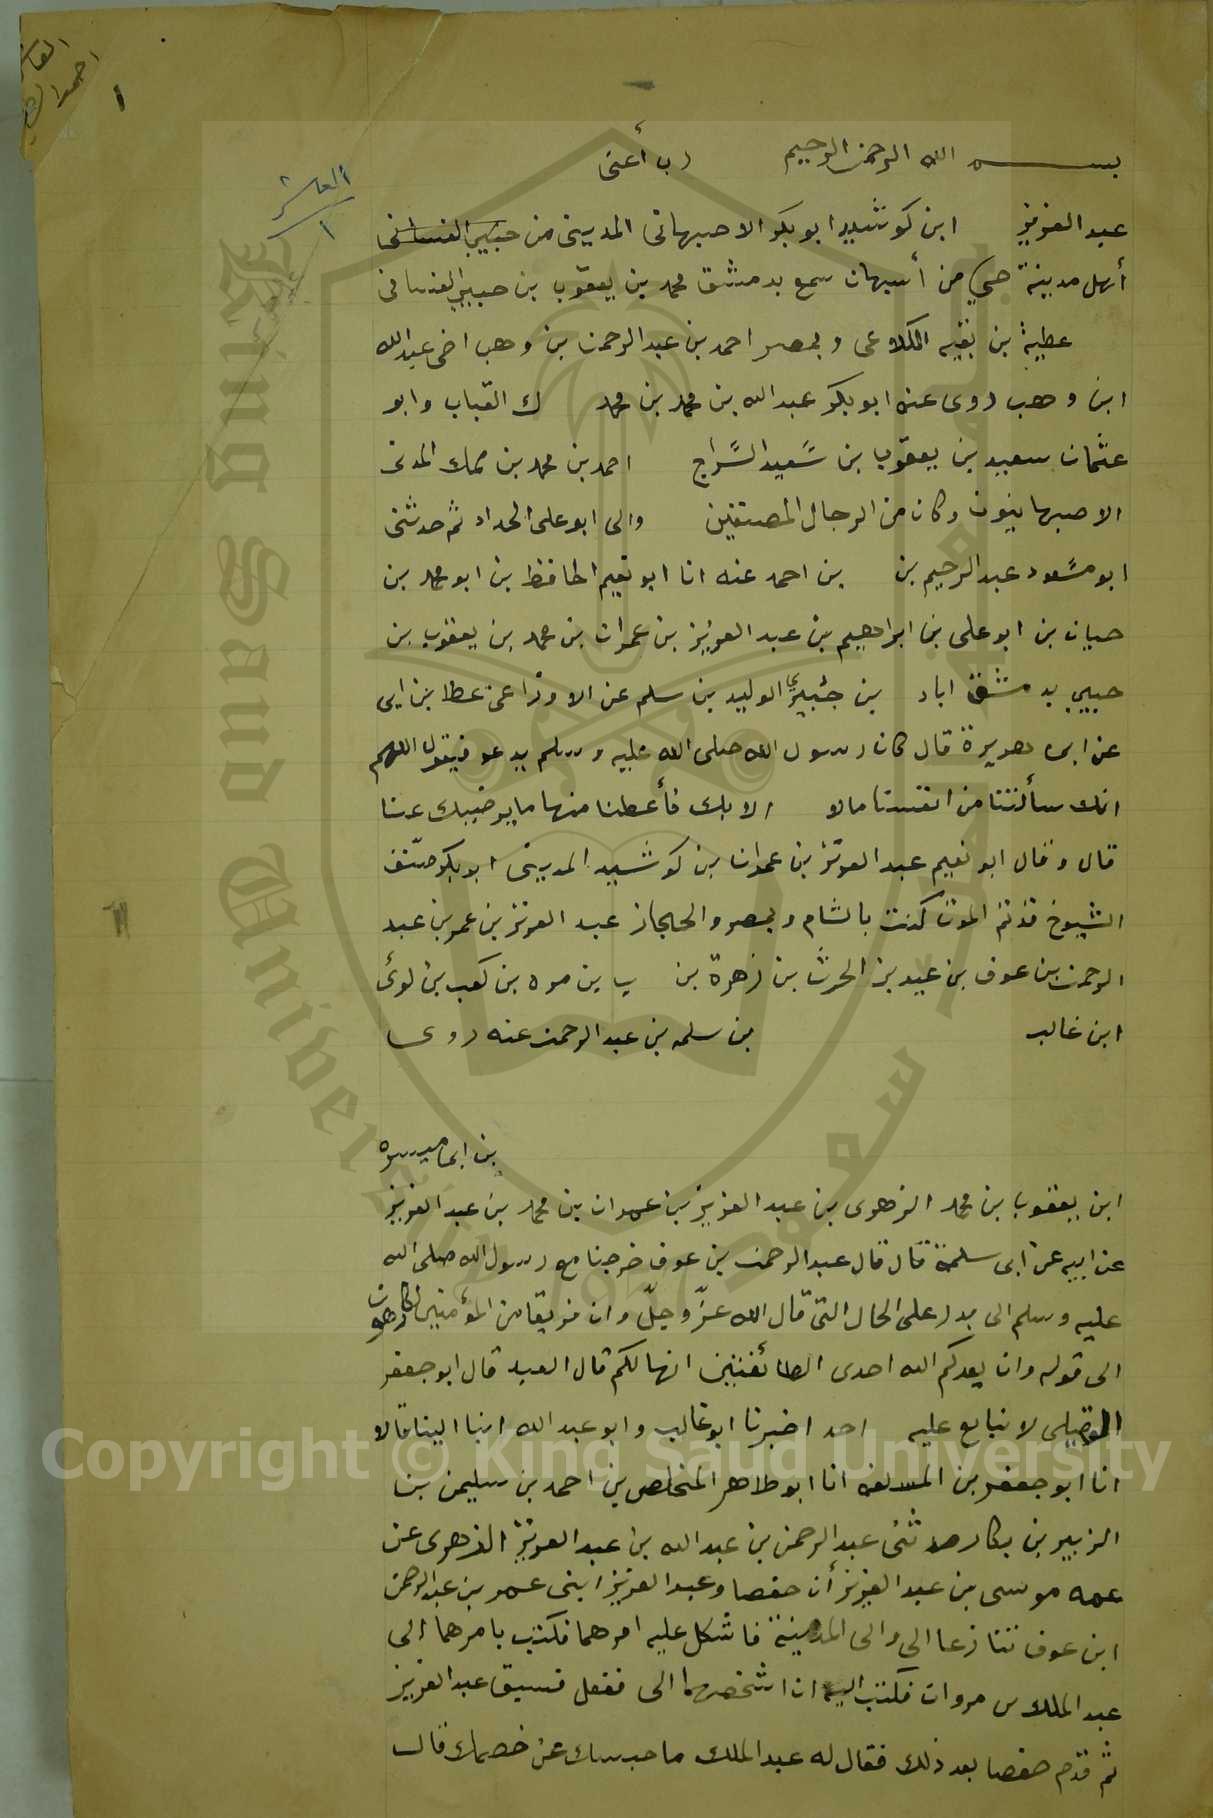 العاشر
١
بسم الله الرحمن الرحيم رب أعني
عبد العزيز ابن كوشيد ابو بكر الاصبهاني المديني من
أهل مدينة جي من أسبهان سمع بدمشق محمد بن يعقوب بن حبيب الغساني
عطية بن بقيه الكلاعي وبمصر احمد بن عبد الرحمن بن وهب اخي عبد الله
ابن وهب روى عنه ابو بكر عبد الله بن محمد بن محمد ك القباب وابو
عثمان سعيد بن يعقوب بن سعيد السراج احمد بن محمد بن ممك المدني
الاصبهانيون وكان من الرجال المصنفين والى ابو علي الحداد ثم حدثني
ابو مسعود عبد الرحيم بن بن احمد عنه انا ابو نعيم الحافظ بن ابو محمد بن
حيان بن ابو علي بن ابراهيم بن عبد العزيز بن عمران بن محمد بن يعقوب بن
حبيب بدمشق اباد بن الوليد بن سلم عن الاوزاعي عطا بن ابي
عن ابى هريرة قال كان رسول الله صلى الله عليه وسلم يدعو فيقول اللهم
انك سألتنا من انفسنا مالا الا بك فأعطنا منها ما يرضيك عنا
قال وقال ابو نعيم عبد العزيز بن عمران بن كوشيد المديني ابو بكر صنف
الشيوخ كتب بالشام وبمصر والحجاز عبد العزيز بن عمر بن عبد
الرحمن بن عوف بن عبد بن الحرث بن زهرة بن ب بن مره بن كعب بن لوئ
ابن غالب بن سلمه بن عبد الرحمن عنه روى
بن
ابن يعقوب بن محمد الزهري بن عبد العزيز بن عمران بن محمد بن عبد العزيز
عن ابيه عن ابى سلمة قال قال عبد الرحمن بن عوف خرجنا مع رسول الله صلى الله
عليه وسلم الى بدر على الحال التي قال الله عزّ وجلّ وان فريقا من المؤمنين لكارهون
الى قوله وان يعدكم الله احدى الطائفتين انها لكم قال العبد قال ابو جعفر
لا نتابع عليه احد اخبرنا ابو غالب وابو عبد الله ابنا البنا قالا
انا ابو جعفر بن المسلمه انا ابو طاهر المخلص بن احمد بن سليمن بنا
الزبير بن بكار حدثنى عبد الرحمن بن عبد الله بن عبد العزيز الزهري عن
عمه موسى بن عبد العزيز أن حفصا وعبد العزيز ابنى عمر بن عبد الرحمن
ابن عوف تنازعا الى والى المدينة فاشكل عليه امرهما فكتب بامرهما الى
عبد الملك بن مروان فكتب اليه ان اشخصهما الى ففعل فسبق عبد العزيز
ثم قدم حفصا بعد ذلك فقال له عبد الملك ما حبسك عن خصمك قال
King Saud University
Copyright © King Saud University
1957